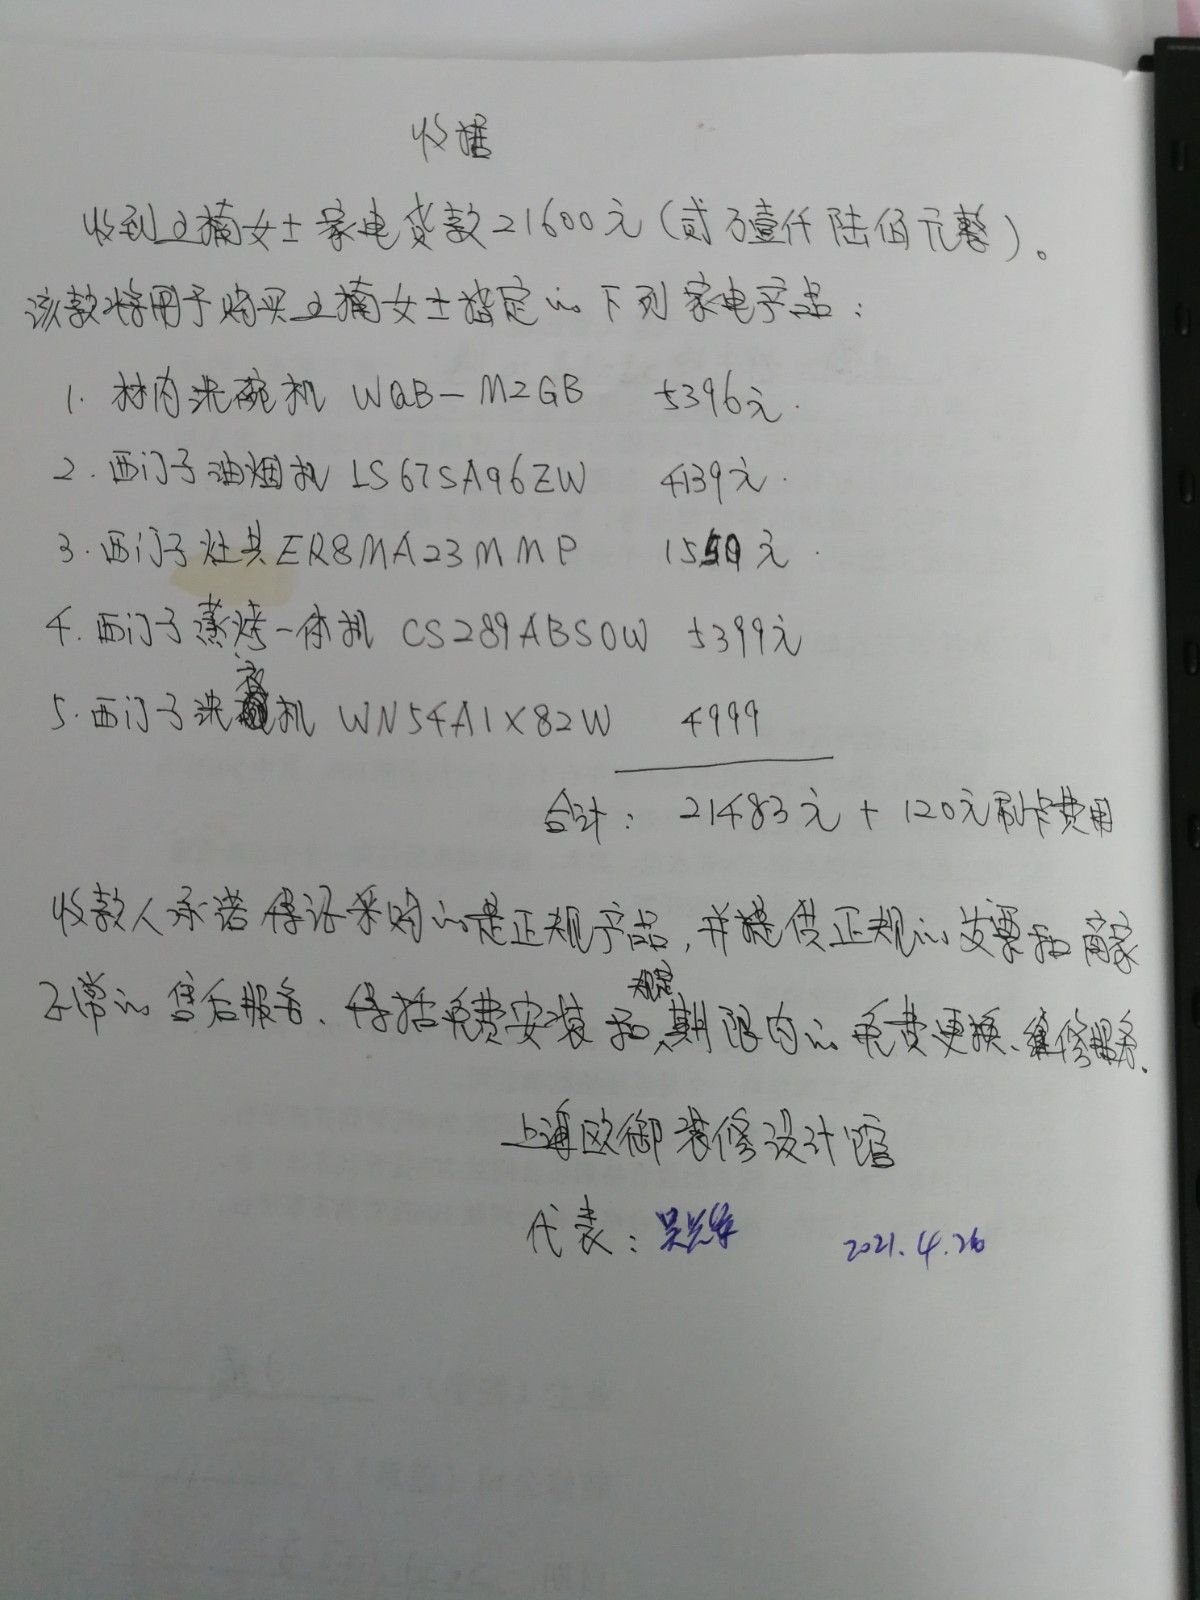 收据
收到立楠女士家电货款21600元(贰万壹仟陆佰元整)。
该款将用于购买立楠女士指定的下列家电产品:
1. 林内洗碗机 WQB-M2GB 5396元.
2. 西门子油烟机 LS67SA96ZW 4139元.
3. 西门子灶具ER8MA23MMP 1550元.
4. 西门子蒸烤一体机 CS289ABS0W 5399元
5. 西门子洗衣机 WN54A1X82W 4999
合计: 21483元 + 120元刷卡费用
收款人承诺保证采购的是正规产品,并提供正规的发票和商家
正常的售后服务、保括免费安装和规定期限内的免费更换、维修服务.
上海欧御装修设计馆
代表: 2021.4.26